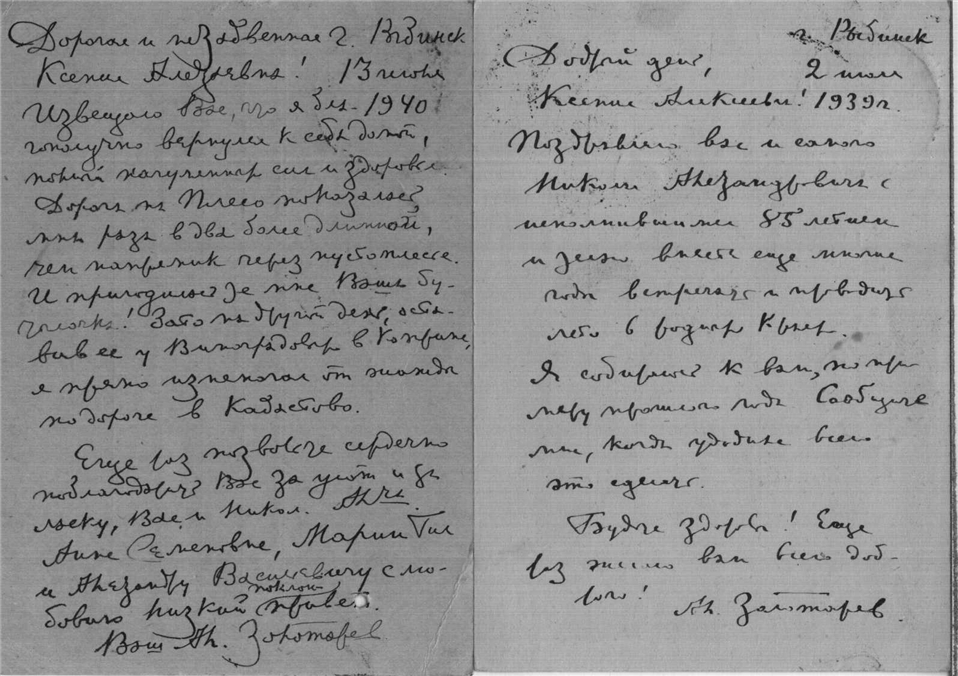 Дорогая и незабвенная г. Рыбинск
Ксения Алексеевна! 13 июля
Извещаю Вас, что я бла- 1940
гополучно вернулся к себе домой,
полный полученных сил и здоровья.
Дорога на Плесо показалась
мне раза в два более длинной,
чем напрямик через пустоплесье.
И пригодилась же мне Ваша бу-
тылочка! Зато на другой день, оста-
вив ее у Виноградовых в Коприне,
я прямо изнемогал от жажды
по дороге в
Еще раз позвольте сердечно
поблагодарить Вас за уют и за
ласку, Вас и Никол. Ал-ча.
Анне Семеновне, Марии
и Александру Васильевичу с лю-
бовью низкий поклон
привет.
Ваш Ал. Золотарев
г. Рыбинск
Добрый день, 2 июля
Ксения Алексеевна! 1939 г.
Поздравляю вас и самого
Николая Александровича с
исполнившимся 85 летием
и желаю вместе еще многие
годы встречать и проводить
лето в родных краях.
Я собираюсь к вам, по при-
меру прошлого года. Сообщите
мне, когда удобнее всего
это сделать.
Будьте здоровы! Еще
раз желаю вам всего доб-
рого!
Ал. Золотарев.